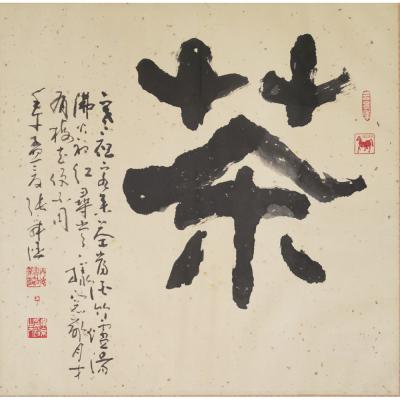 茶
寒夜客來茶當酒竹爐湯
沸火初紅尋常一樣窗前月才
有梅花便不同